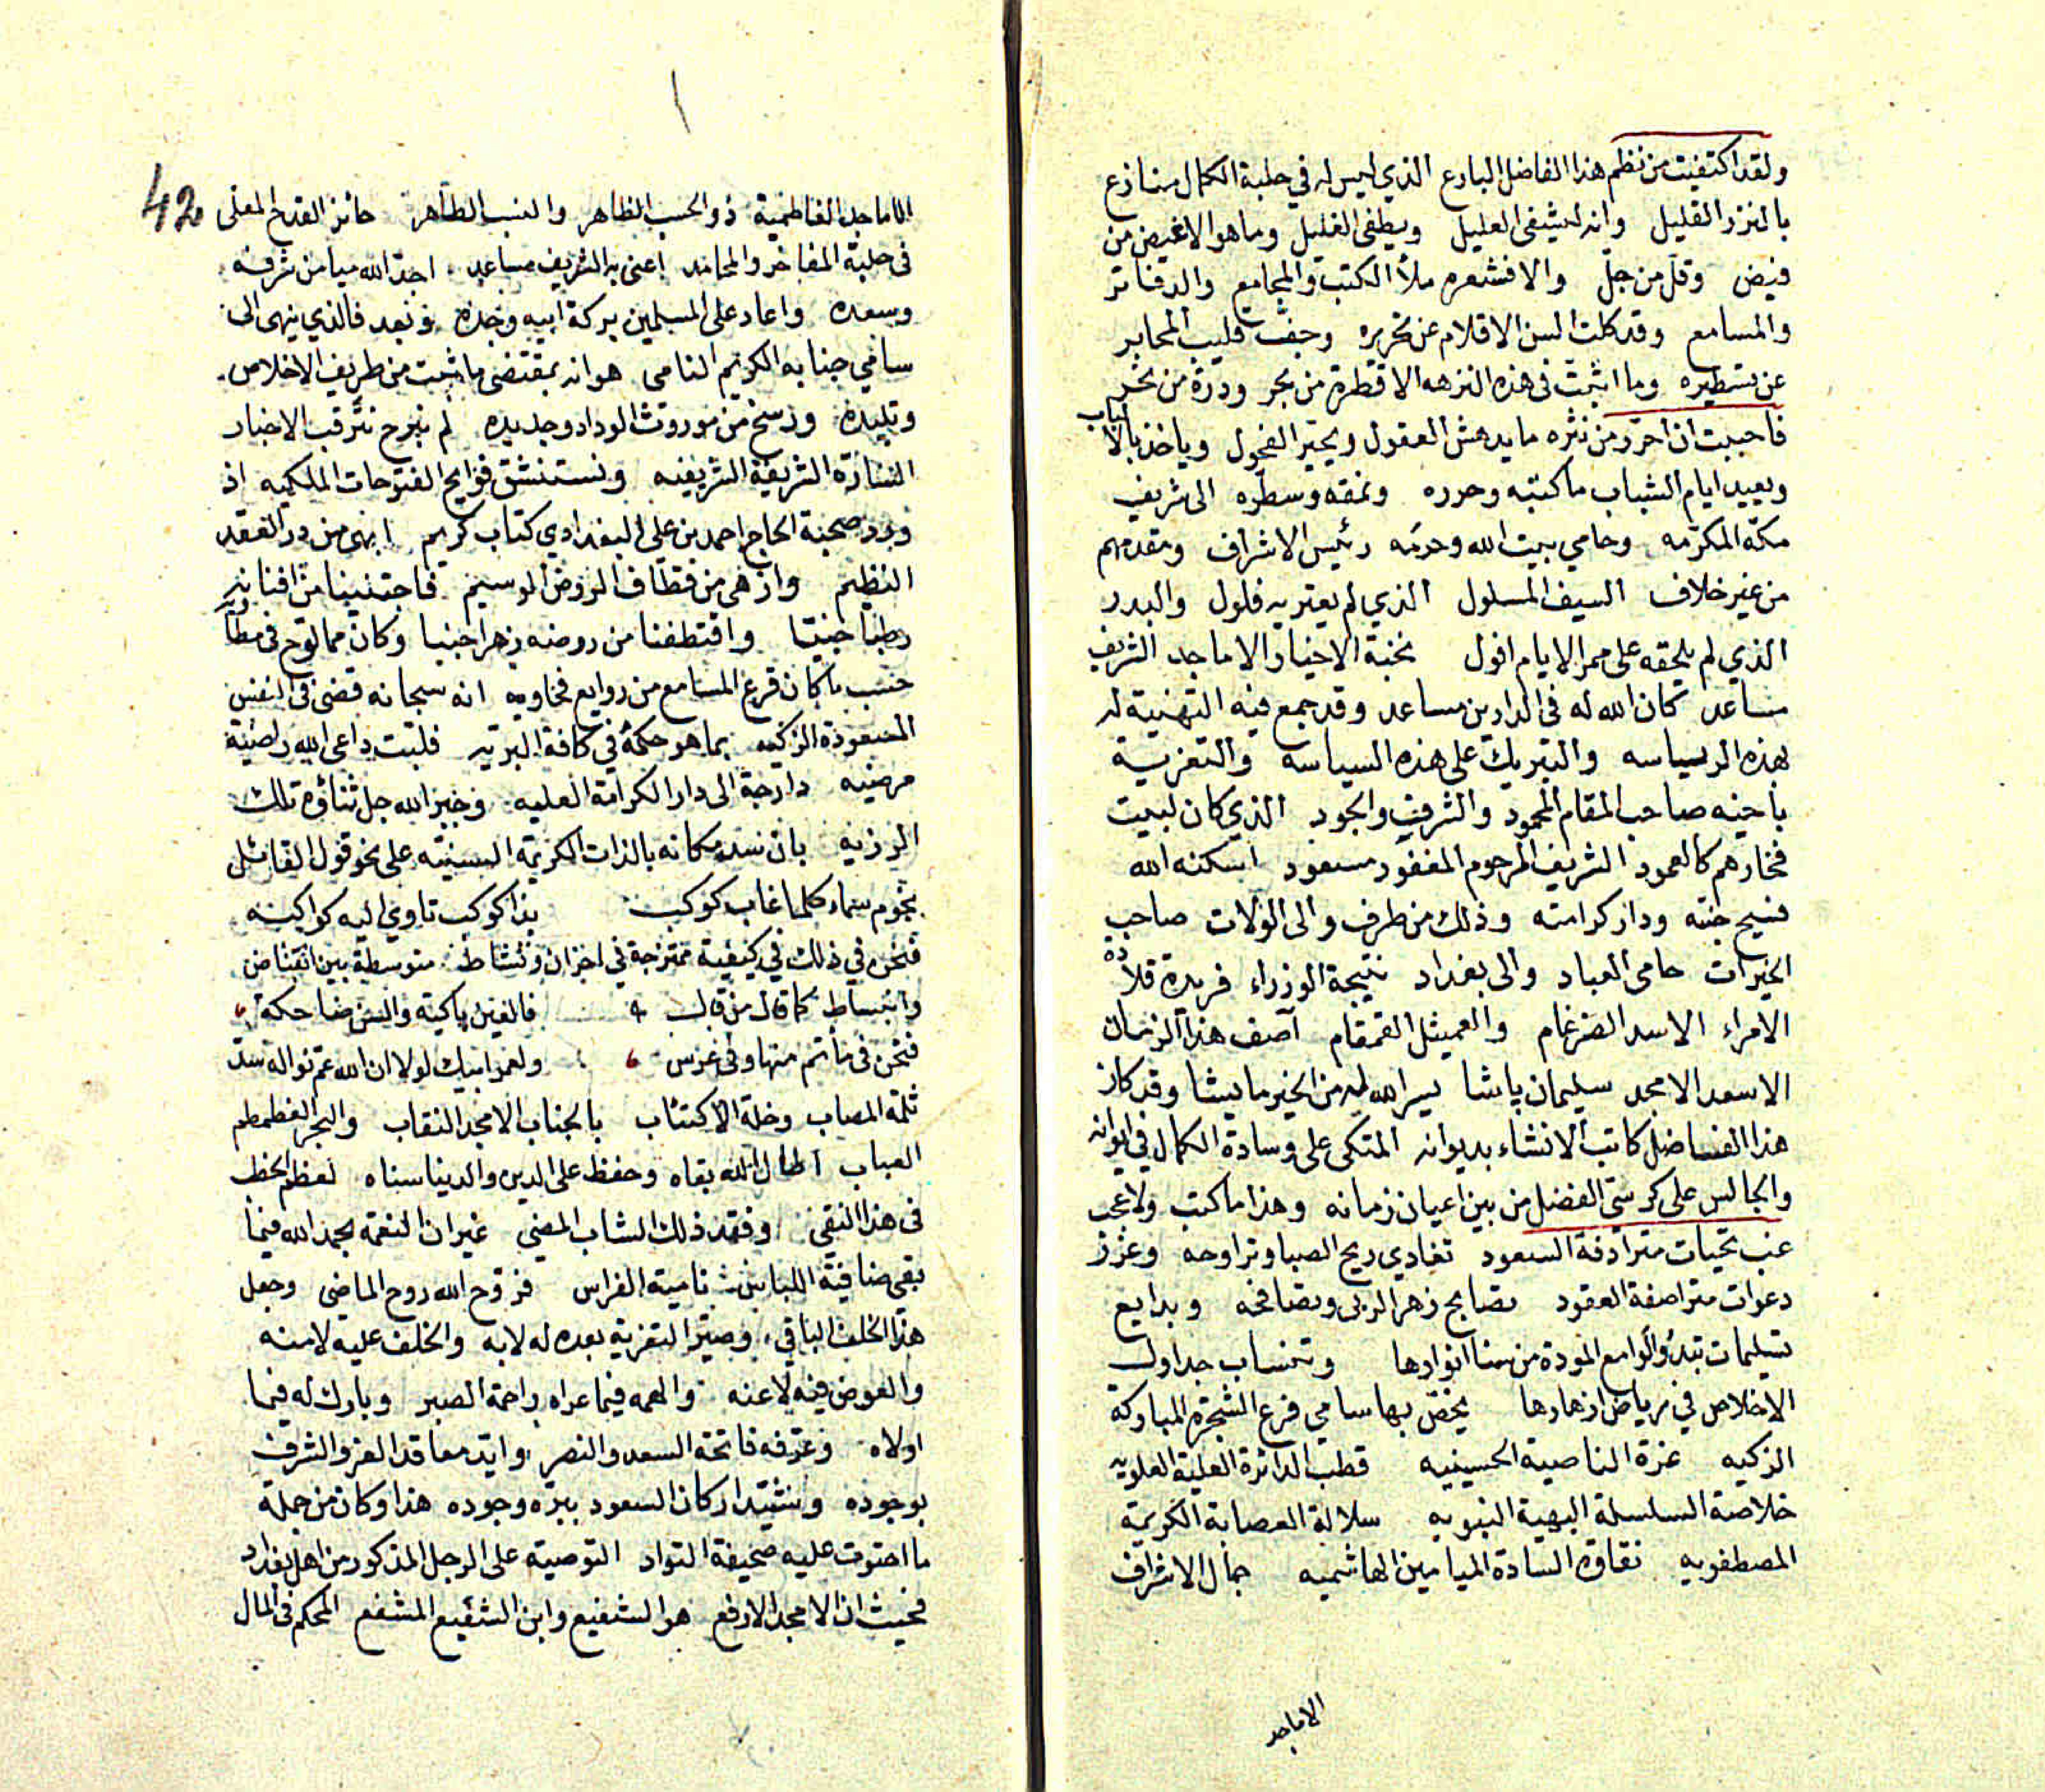 ولقد اكتفيت من نظم هذا الفاضل البارع الذي ليس له في حلبة الكمال منازع
بالنزر القليل وانه ليشفى العليل ويطفى الغليل وما هو الا غيض من
فيض وقل من جل والا فشعره ملأ الكتب والمجامع والدفاتر
والمسامع وقد كلت السن الاقلام عن تحريره وجفت قليب المحابر
عن تسطيره وما اثبت في هذه النزهه الا قطرة من بحر ودرة من نحر
فاحببت ان احرر من نثره ما يدهش العقول ويحير الفحول وياخذ بالالباب
ويعيد ايام الشباب ما كتبه وحرره ونمقه وسطره الى شريف
مكة المكرمه وحامي بيت الله وحرمه رئيس الاشراف ومقدمهم
من غير خلاف السيف المسلول الذي لم يعتريه فلول والبدر
الذي لم يلحقه على ممر الايام افول نخبة الاخيار الاماجد الشريف
مساعد كان الله له في الدارين مساعد وقد جمع فيه التهنية له
بهذه الرياسه والتبريك على هذه السياسه والتعزية
باخيه صاحب المقام المحمود والشرف والجود الذي كان لبيت
فخارهم كالعمود الشريف المرحوم المغفور مسعود اسكنه الله
فسيح جنته ودار كرامته وذلك من طرف والى الولات صاحب
الخيرات حامى العباد والى بغداد نتيجة الوزراء فريدة قلادة
الامراء الاسد الضرغام والعميثل القمقام آصف هذا الزمان
الاسعد الامجد سليمان پاشا يسر الله له من الخير ما يشا وقد كان
هذا الفاضل كاتب الانشاء بديوانه المتكى على وسادة الكمال في ايوانه
والجالس على كرسى الفضل من بين اعيان زمانه وهذا ما كتب ولا عجب
غب تحيات مترادفة السعود تغادي ريح الصبا وتراوحه وغرر
دعوات متراصفة العقود تصابح زهر الربى وتصافحه وبدايع
تسليمات تبدو لوامع المودة من سنا انوارها وتنساب جداول
الاخلاص في رياض ازهارها يخص بها سامي فرع الشجرة المباركة
الزكيه غرة الناصية الحسينيه قطب الدائرة العلية العلويه
خلاصة السلسلة البهية النبويه سلالة العصابة الكريمة
المصطفويه نقاوة السادة الميامين الهاشميه جمال الاشراف
الاماجد
42
الاماجد الفاطمية ذو الحسب الظاهر والنسب الطاهر حائز القدح المعلى
فى حلبة المفاخر والمحامد اعنى به الشريف مساعد اجد الله ميامن شرفه
وسعده واعاد على المسلمين بركة ابيه وجده وبعد فالذي ينهى الى
سامي جنابه الكريم النامى هو انه بمقتضى ما ثبت من طريف الاخلاص
وتليده ورسخ من موروث الوداد وجديده لم نبرح نترقب الاخبار
السارة الشريفة الشريفيه ونستنشق فوايح الفتوحات الملكيه اذ
ورد صحبة الحاج احمد بن على البغدادي كتاب كريم ابهى من در العقد
النظيم وازهى من قطاف الروض الوسيم فاجتنينا من افنانه
رطبا جنيا واقتطفنا من روضه زهرا جنيا وكان مما لوح في مطاويه
حسب ما كان قرع المسامع من روايع فحاويه انه سبحانه قضى في النفس
المسعودة الزكيه بما هو حكمه في كافة البريه فلبت داعى الله راضية
مرضيه دارجة الى دار الكرامة العليه وجبر الله جل ثناؤه تلك
الرزيه بان سد مكانه بالذات الكريمة السنيه على نحو قول القائل
نجوم سماء كلما غاب كوكب بدا كوكب تاوي اليه كواكبه
فنحن في ذلك في كيفية ممتزجة في احزان ونشاط متوسطة بين انقباض
وانبساط كما قال من قال فالعين باكية والسن ضاحكة
فنحن في مأتم منها وفى عرس ولعمر ابيك لولا ان الله عم نواله سد
ثلمة المصاب وخلة الاكتئاب بالجناب الامجد النقاب والبحر الغطمطم
العباب اطال الله بقاه وحفظ على الدين والدنيا سناه لعظم الخطب
فى هذا النقي وفقد ذلك الشاب المضي غير ان النعمة بحمد الله فيما
بقى ضافية اللباس نامية الغراس فروح الله روح الماضي وجعل
هذا الخلف الباقي وصير التعزية بعده له لا به والخلف عليه لا منه
والعوض فيه لا عنه والهمه فيما عراه راحة الصبر وبارك له فيما
اولاه وعرفه فاتحة السعد والنصر وايد معاقد العز والشرف
بوجوده وشيد اركان السعود ببره وجوده هذا وكان من جملة
ما احتوت عليه صحيفة التواد التوصية على الرجل المذكور من اهل بغداد
فحيث ان الامجد الارفع هو الشفيع وابن الشفيع المشفع المحكم في المال